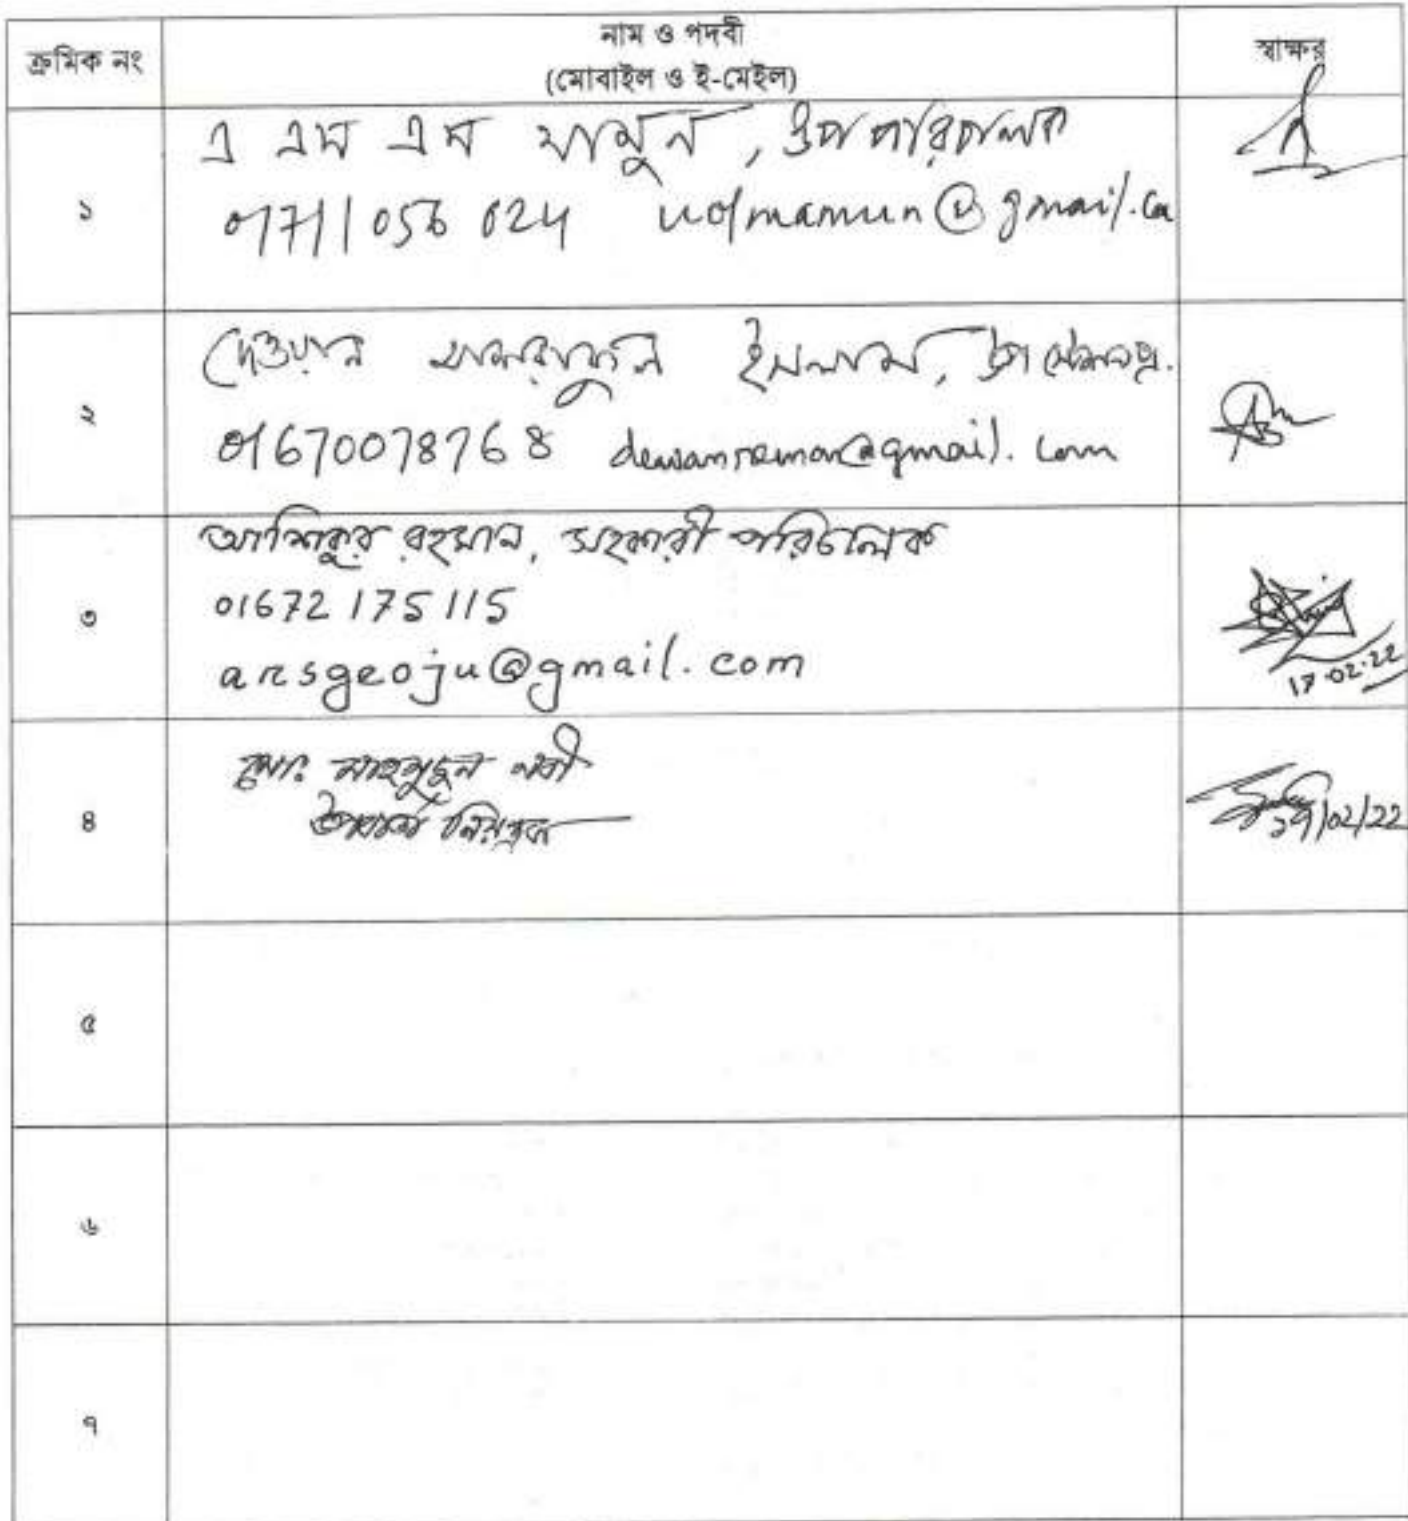 ক্রমিক নং
নাম ও পদবী
(মোবাইল ও ই-মেইল)
স্বাক্ষর
১
এ এস এম মামুন, উপ পরিচালক
01711056024 uofmamun@gmail.co
২
দেওয়ান ইসলাম, উপ
01670078768 dewanraman@gmail.com
৩
আশিকুর রহমান, সহকারী পরিচালক
01672175115
arsgeoju@gmail.com
17.02.22
৪
মোঃ মাহমুদুন নবী
নিয়ন্ত্রক
১৭/02/22
৫
৬
৭